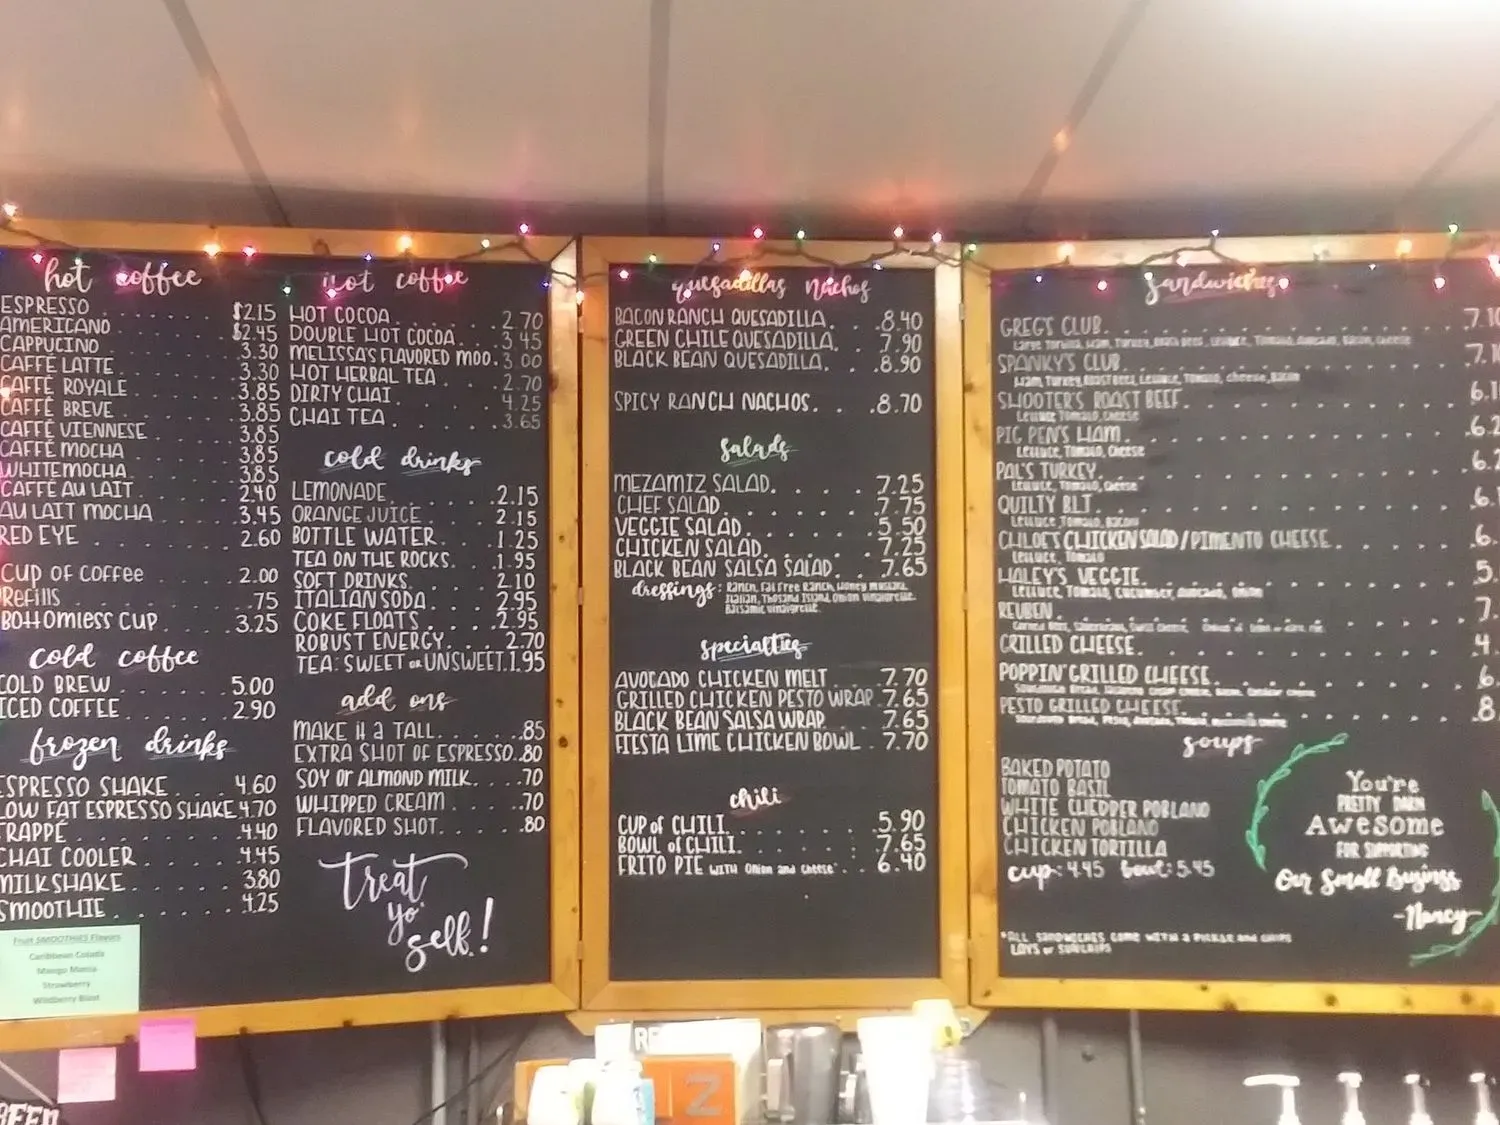 hot coffee
ESPRESSO $2.15
AMERICANO $2.45
CAPPUCINO 3.30
CAFFÉ LATTE 3.30
CAFFÉ ROYALE 3.85
CAFFÉ BREVE 3.85
CAFFÉ VIENNESE 3.85
CAFFÉ MOCHA 3.85
WHITE MOCHA 3.85
CAFFÉ AU LAIT 2.40
AU LAIT MOCHA 3.45
RED EYE 2.60
CUP OF COFFEE 2.00
REFILLS .75
BOTTOMLESS CUP 3.25
cold coffee
COLD BREW 5.00
ICED COFFEE 2.90
frozen drinks
ESPRESSO SHAKE 4.60
LOW FAT ESPRESSO SHAKE 4.70
FRAPPE 4.40
CHAI COOLER 4.45
MILKSHAKE 3.80
SMOOTHIE 4.25
Fruit SMOOTHIES Flavors
Caribbean Colada
Mango Mania
Strawberry
Wildberry Blast
hot coffee
HOT COCOA 2.70
DOUBLE HOT COCOA 3.45
MELISSA'S FLAVORED MOO 3.00
HOT HERBAL TEA 2.70
DIRTY CHAI 4.25
CHAI TEA 3.65
cold drinks
LEMONADE 2.15
ORANGE JUICE 2.15
BOTTLE WATER 1.25
TEA ON THE ROCKS 1.95
SOFT DRINKS 2.10
ITALIAN SODA 2.95
COKE FLOATS 2.95
ROBUST ENERGY 2.70
TEA: SWEET or UNSWEET 1.95
add ons
MAKE it a TALL .85
EXTRA SHOT OF ESPRESSO .80
SOY or ALMOND MILK .70
WHIPPED CREAM .70
FLAVORED SHOT .80
Treat
yo'
self!
quesadillas nachos
BACON RANCH QUESADILLA 8.40
GREEN CHILE QUESADILLA 7.90
BLACK BEAN QUESADILLA 8.90
SPICY RANCH NACHOS 8.70
Salads
MEZAMIZ SALAD 7.25
CHEF SALAD 7.75
VEGGIE SALAD 5.50
CHICKEN SALAD 7.25
BLACK BEAN SALSA SALAD 7.65
dressings: Ranch, Fat Free Ranch, Honey Mustard,
Italian, Thousand Island, Onion Vinaigrette,
Balsamic Vinaigrette
specialties
AVOCADO CHICKEN MELT 7.70
GRILLED CHICKEN PESTO WRAP 7.65
BLACK BEAN SALSA WRAP 7.65
FIESTA LIME CHICKEN BOWL 7.70
chili
CUP of CHILI 5.90
BOWL of CHILI 7.65
FRITO PIE WITH Onion and Cheese 6.40
Sandwiches
GREG'S CLUB 7.10
Large Tortilla, Ham, Turkey, Roast Beef, Lettuce, Tomato, Avocado, Bacon, Cheese
SPANKY'S CLUB
Ham, Turkey, Roast Beef, Lettuce, Tomato, cheese, Bacon
SHOOTER'S ROAST BEEF
Lettuce, Tomato, Cheese
PIG PEN'S HAM
Lettuce, Tomato, Cheese
PAL'S TURKEY
Lettuce, Tomato, Cheese
QUILTY BLT
Lettuce, Tomato, Bacon
CHLOE'S CHICKEN SALAD / PIMENTO CHEESE
Lettuce, Tomato
HALEY'S VEGGIE
Lettuce, Tomato, Cucumber, Avocado, Onion
REUBEN
Corned Beef, Sauerkraut, Swiss Cheese
GRILLED CHEESE
POPPIN' GRILLED CHEESE
Sourdough Bread, Jalapeno Cream Cheese, Bacon, Cheddar Cheese
PESTO GRILLED CHEESE
Sourdough Bread, Pesto, Avocado, Tomato, Mozzarella Cheese
soups
BAKED POTATO
TOMATO BASIL
WHITE CHEDDER POBLANO
CHICKEN POBLANO
CHICKEN TORTILLA
cup: 4.45 bowl: 5.45
*ALL SANDWICHES COME WITH a PICKLE and CHIPS
LAYS or SUNCHIPS
You're
PRETTY DARN
AWESOME
FOR SUPPORTING
Our Small Business
-Nancy
Z